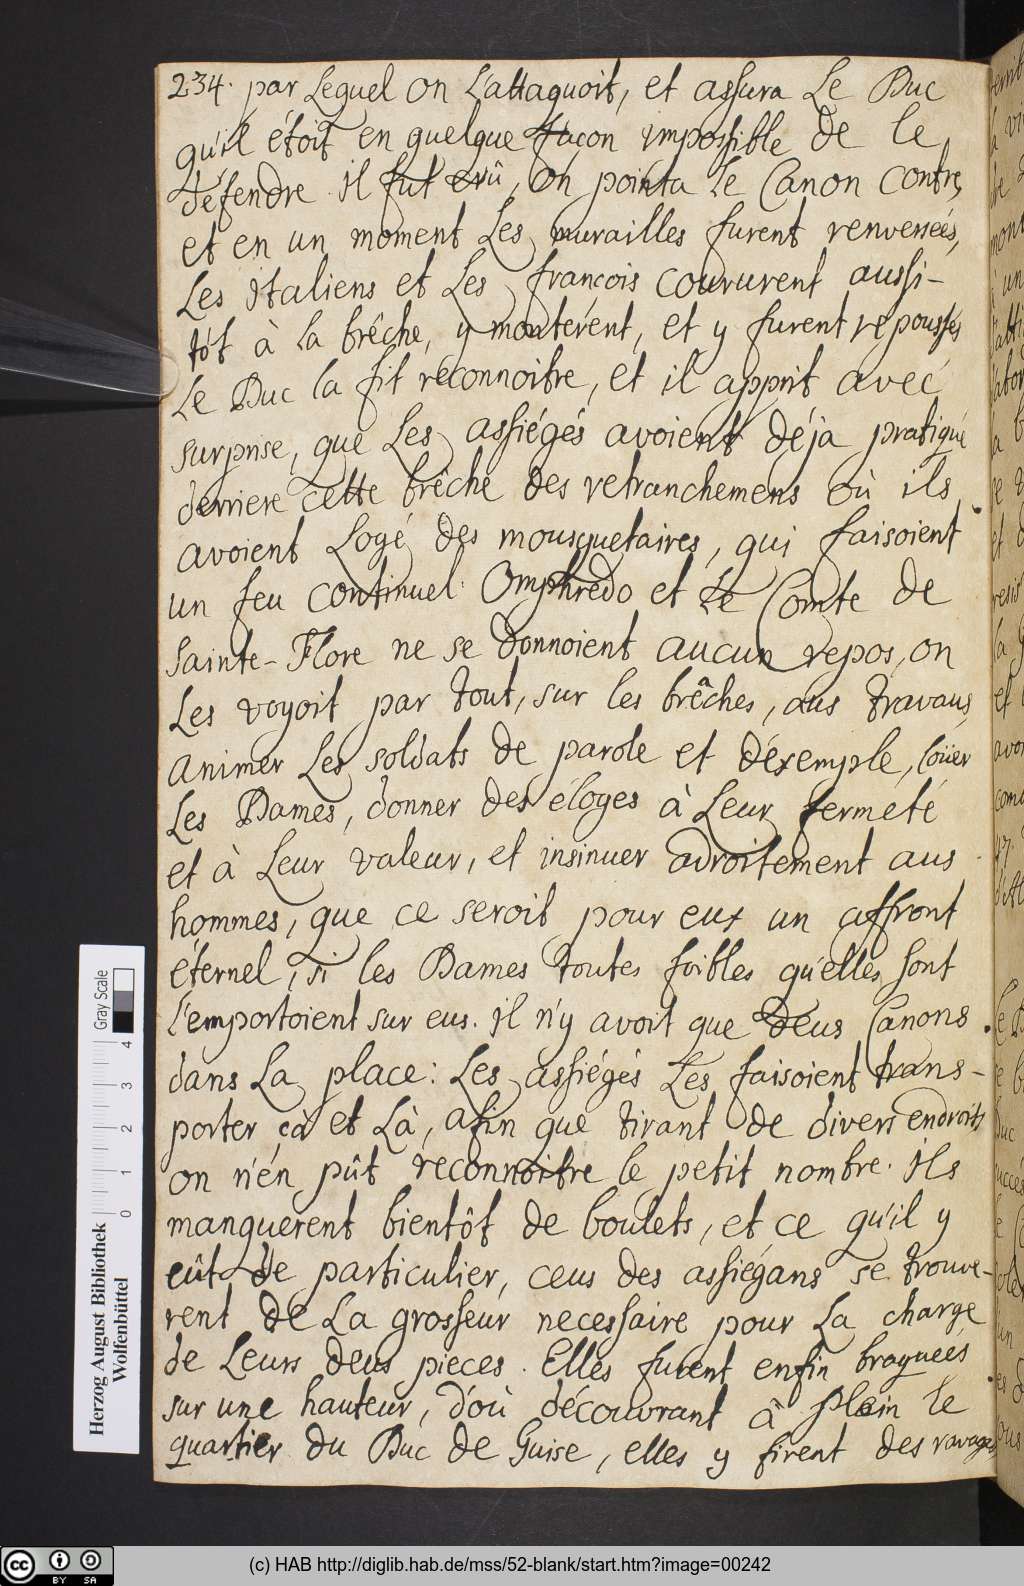 234. par Lequel on L'attaquoit, et assura Le Duc
qu'il étoit en quelque façon impossible de le
défendre. Il fut crû, on pointa Le Canon contre,
et en un moment Les murailles furent renversées,
Les Italiens et Les françois coururent aussi-
tôt à La brêche, y montérent, et y furent repoussés
Le Duc la fit réconnoitre, et il apprit avec
surprise, que Les assiégés avoient déja pratiqué
derriere cette brêche des retranchemens où ils
avoient Logé des mousquetaires, qui faisoient
un feu continuel. Omphredo et Le Comte de
Sainte-Flore ne se donnoient aucun repos, on
Les voyoit par tout, sur les brêches, aus travaus
animer Les soldats de parole et d'éxemple, loüer
Les Dames, donner des éloges à Leur fermété
et à Leur valeur, et insinuer adroitement aus
hommes, que ce seroit pour eux un affront
éternel, si les Dames toutes foibles qu'elles sont
l'emportoient sur eus. Il n'y avoit que deus Canons
dans La place: Les assiégés Les faisoient trans-
porter çà et Là, afin que tirant de divers endroits
on n'én pût reconnoitre le petit nombre. Ils
manquerent bientôt de boulets, et ce qu'il y
eût de particulier, ceus des assiégans se trouve-
rent de La grosseur necessaire pour La charge
de Leurs deus pieces. Elles furent enfin braquées
sur une hauteur, d'où découvrant à plein le
quartier du Duc de Guise, elles y firent des ravages
Herzog August Bibliothek
Wolfenbüttel
0 1 2 3 4
Gray Scale
(c) HAB http://diglib.hab.de/mss/52-blank/start.htm?image=00242
cc BY SA